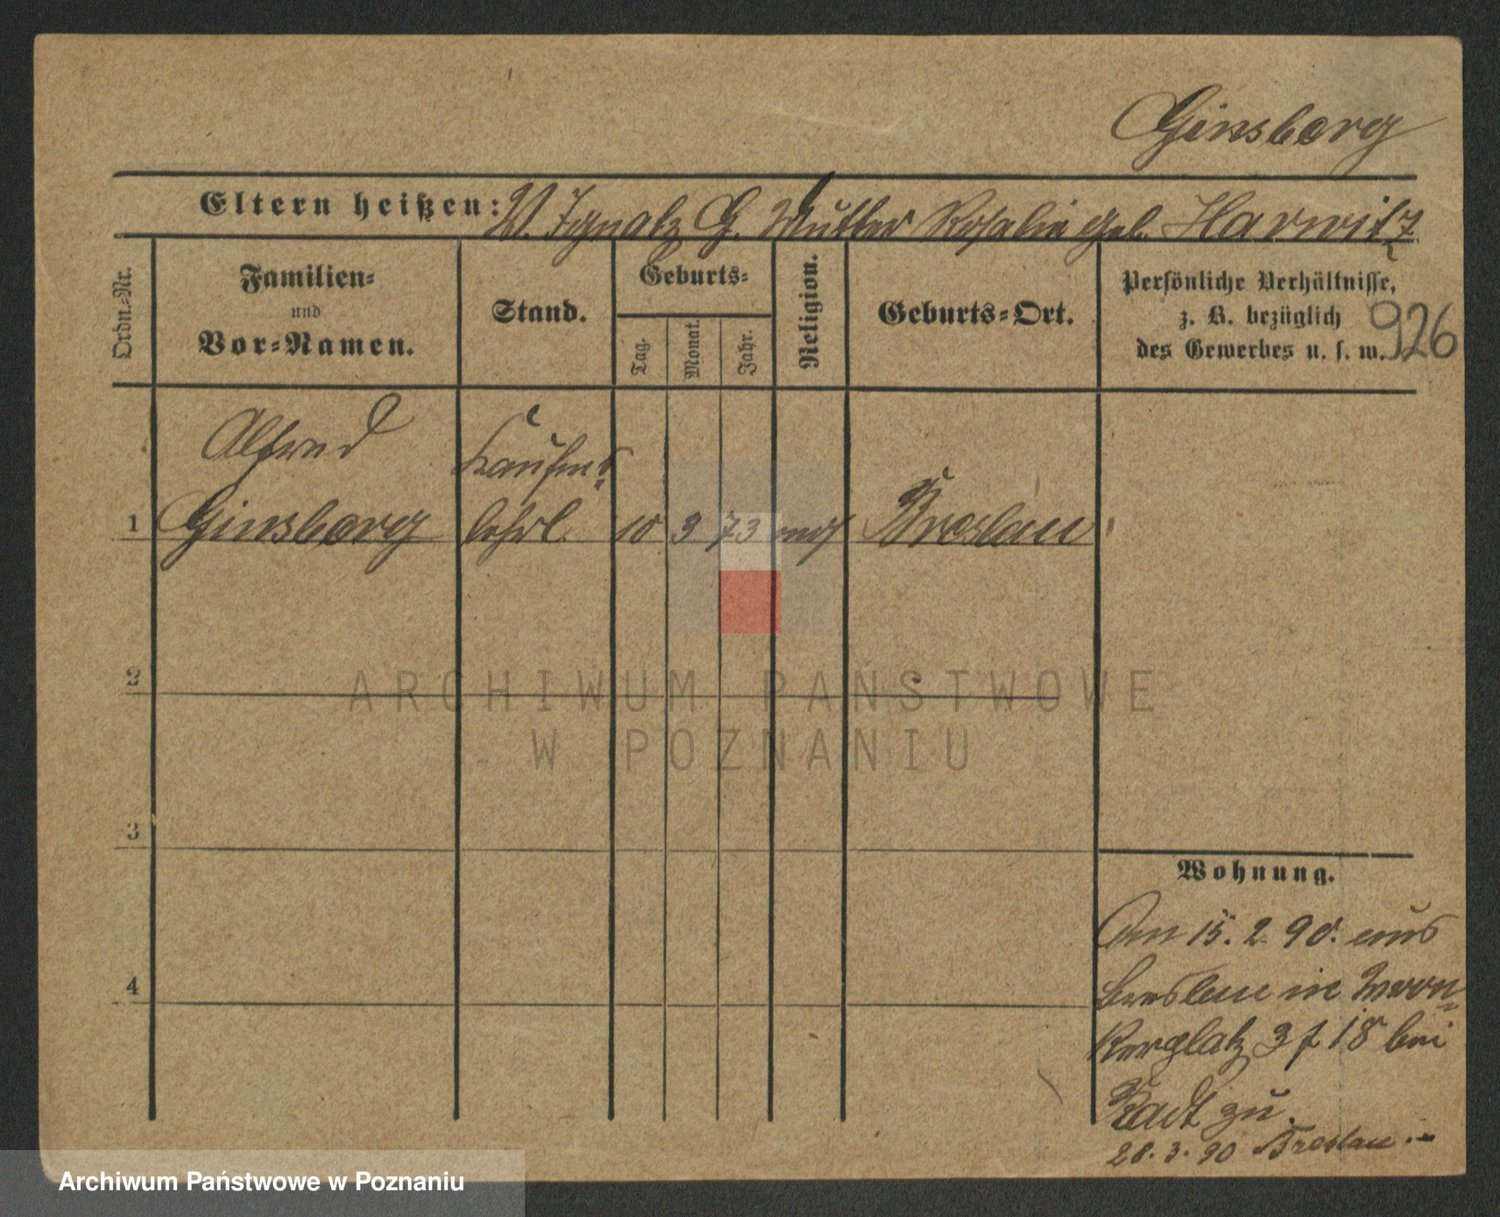 Ginsberg
Eltern heißen: V. Ignatz G. Mutter Rosalie geb. Harwitz
Ordn.-Nr.
Familien-
und
Vor-Namen.
Stand.
Geburts-
Tag.
Monat.
Jahr.
Religion.
Geburts-Ort.
Persönliche Verhältnisse,
z. B. bezüglich
des Gewerbes u. s. w.
926
Alfred
Kaufm.
1 Ginsberg lehrl. 10 3 73 mos Breslau
2
3
4
Wohnung.
Am 15. 2. 90. aus
Breslau in
3 f 18 bei
zu.
28. 3. 90 Breslau
ARCHIWUM PAŃSTWOWE
W POZNANIU
Archiwum Państwowe w Poznaniu